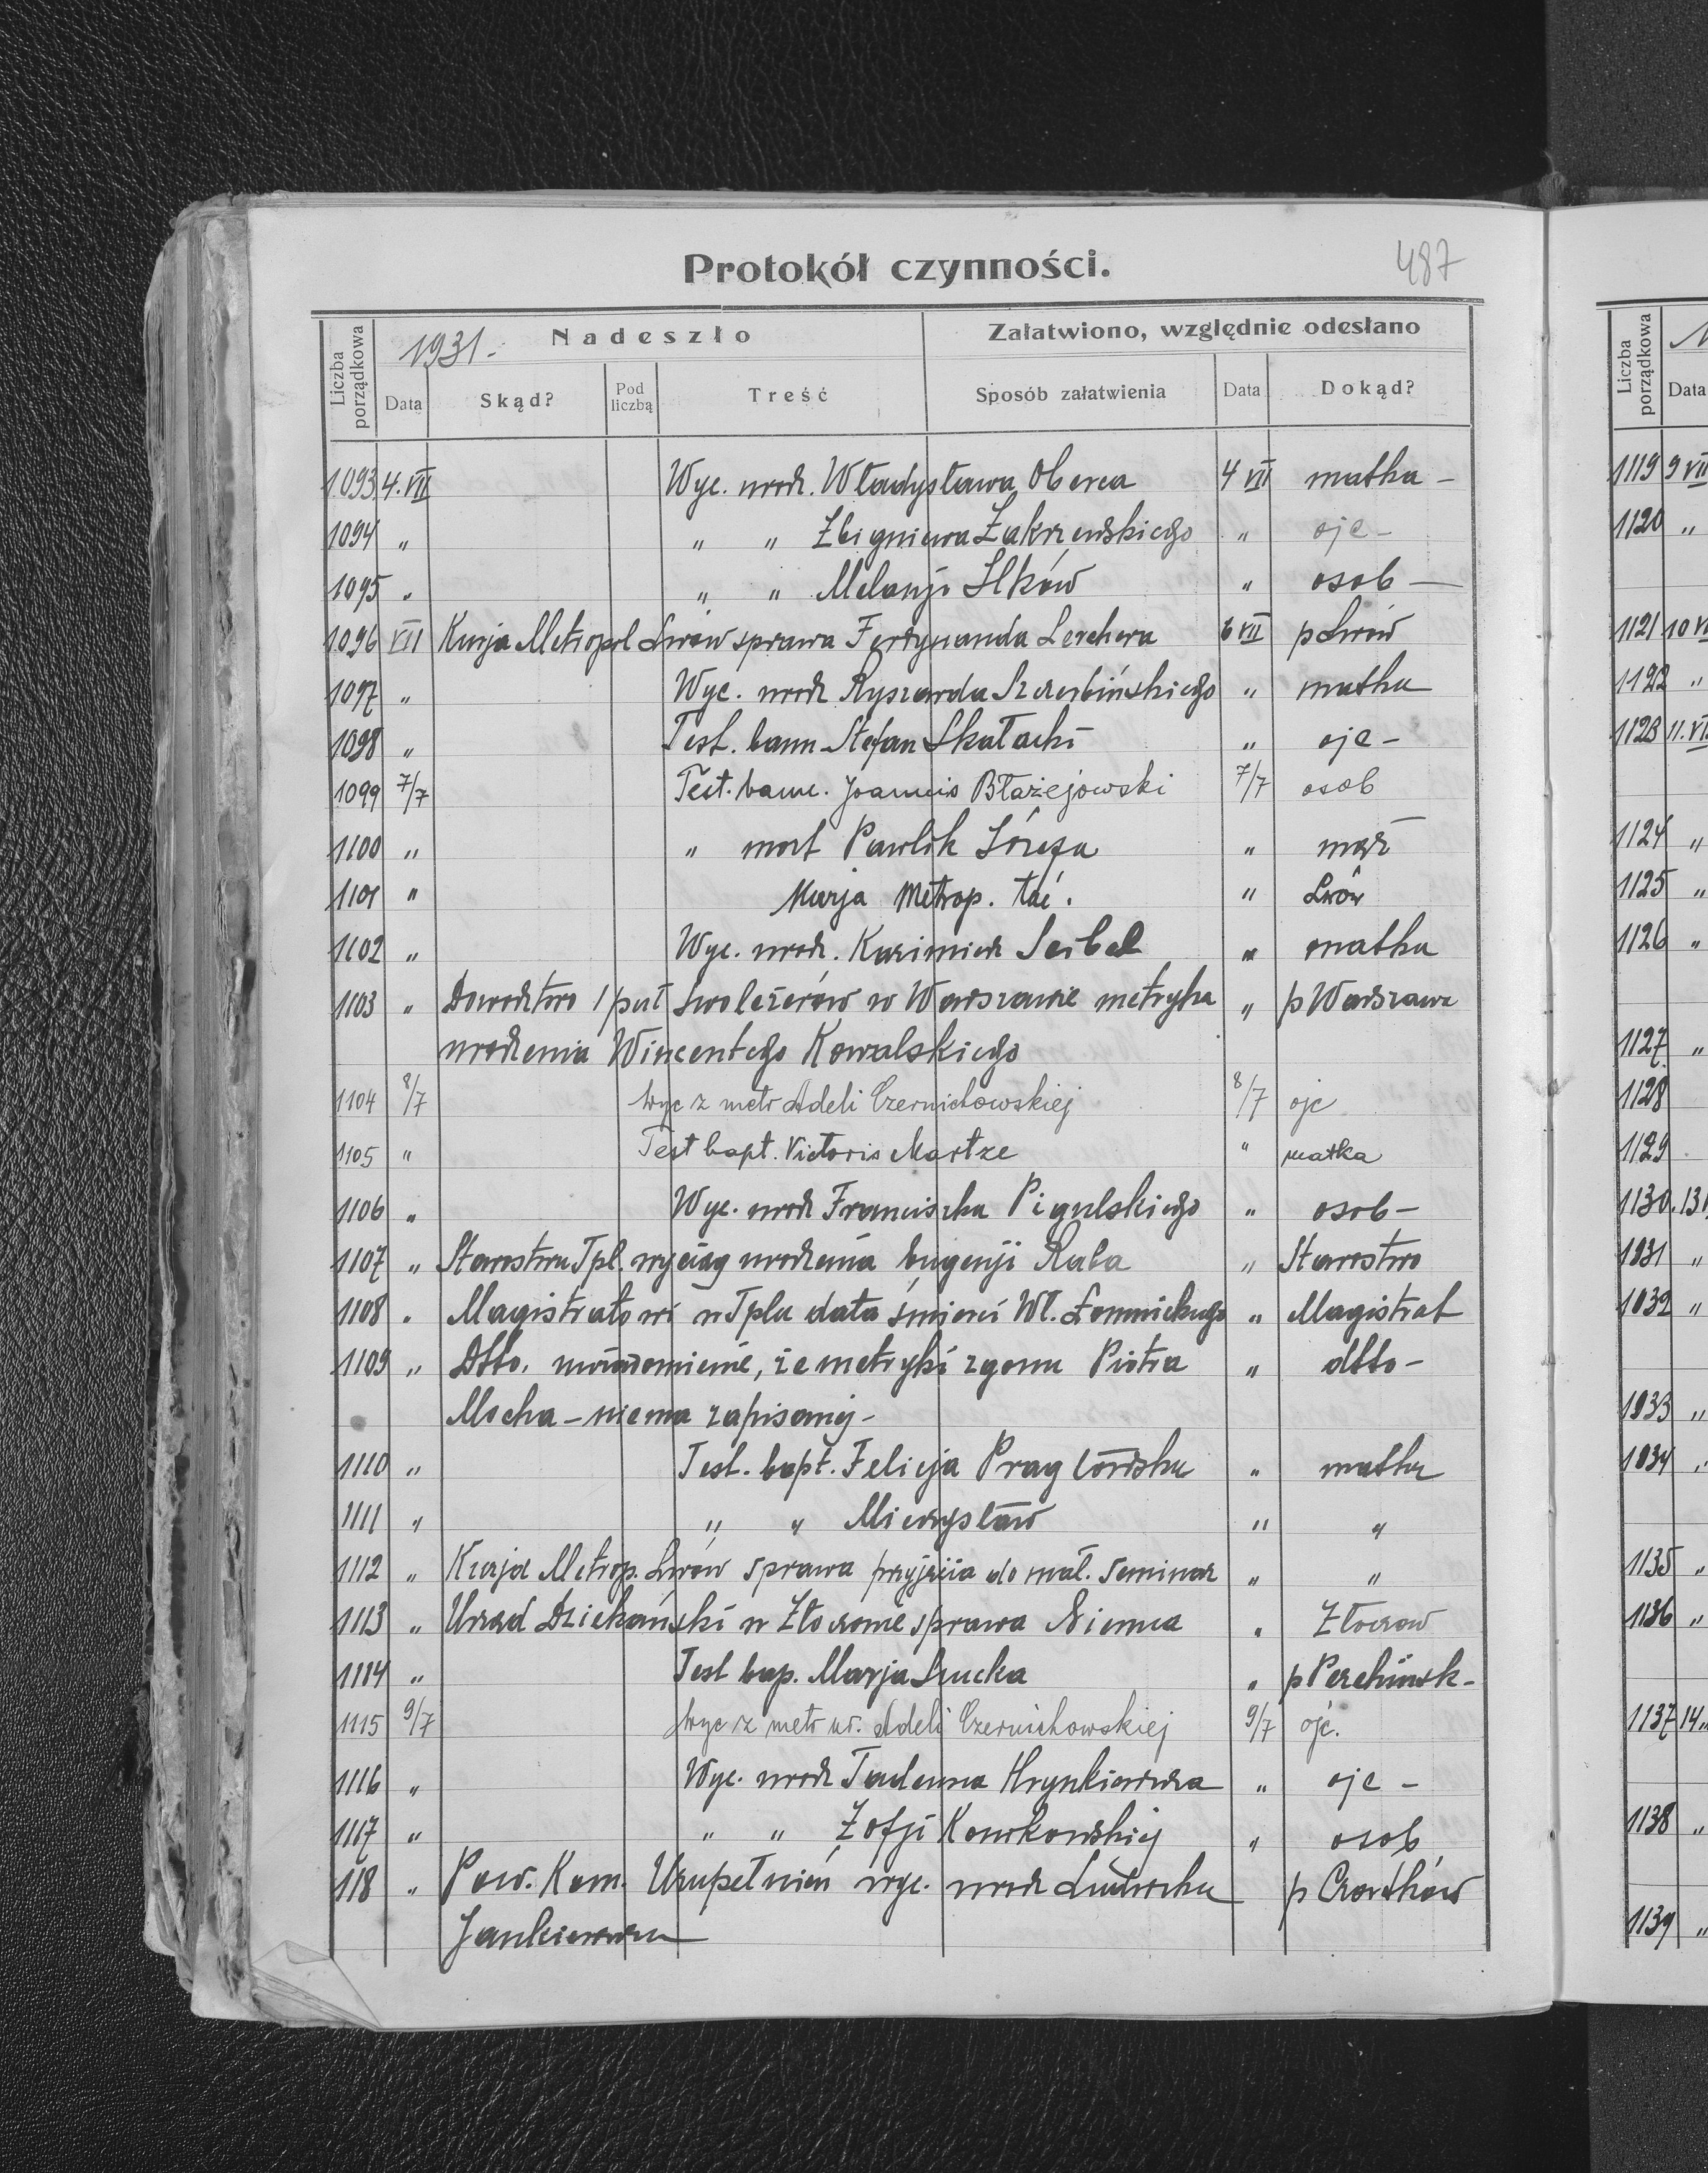 Protokół czynności. 487
Liczba porządkowa 1931.- Nadeszło Załatwiono, względnie odesłano
Data Skąd? Pod liczbą Treść Sposób załatwienia Data Dokąd?
1093 4.VII Wyc. urodz. Władysława Oberca 4 VII matka -
1094 " " " Zbigniewa Zakrzewskiego " ojc -
1095 " " " Melanji Ilków " osob -
1096 VII Kurja Metropol Lwów sprawa Ferdynanda Lerchera 6 VII p Lwów
1097 " Wyc. urodz Ryszarda Szczerbińskiego " matka
1098 " Test. bann Stefan Skałacki " ojc -
1099 7/7 Test. bann. Joannis Błażejowski 7/7 osob
1100 " " mort Pawlik Józefa " mąż
1101 " Kurja Metrop. łać. " Lwów
1102 " Wyc. urodz. Kazimierz Seibel " matka
1103 " Dowództwo 1 puł Szwoleżerów w Warszawie metryka " p Warszawa
urodzenia Wincentego Kowalskiego
1104 8/7 Wyc z metr Adeli Czernichowskiej 8/7 ojc
1105 " Test bapt. Victoris Martze " matka
1106 " Wyc. urodz Franciszka Pigulskiego " osob -
1107 " Starostwu Tpl. wyciąg urodzenia Eugenji Raba " Starostwo
1108 " Magistratowi w Tplu data śmierci Wł. Łomnickiego " Magistrat
1109 " Dtto. uwiadomienie, że metryki zgonu Piotra " dtto -
Mocha - niema zapisanej -
1110 " Test. bapt. Felicja Pragłowska " matka
1111 " " " Mieczysław " "
1112 " Kurja Metrop. Lwów sprawa przyjęcia do mał. Seminar " "
1113 " Urząd Dziekański w Złoczowie sprawa Niemca " Złoczow
1114 " Test bap. Marja " p Perehińsk -
1115 9/7 Wyc z metr ur. Adeli Czernichowskiej 9/7 ojc.
1116 " Wyc. urodz Tadeusza Hrynkiewicza " ojc -
1117 " " " Zofji Konikowskiej " osob
118 " Pow. Kom. Uzupełnień wyc. urodz Ludwika p Czortków
Jankiewicza
Liczba porządkowa Data
1119 9 VII
1120 "
1121 10 VI
1122 "
1123 11.VI
1124 "
1125 "
1126 "
1127 "
1128
1129
1130. 13
1031 "
1032 "
1033 "
1034 "
1135 "
1136 "
1137 14
1138 "
1139 "